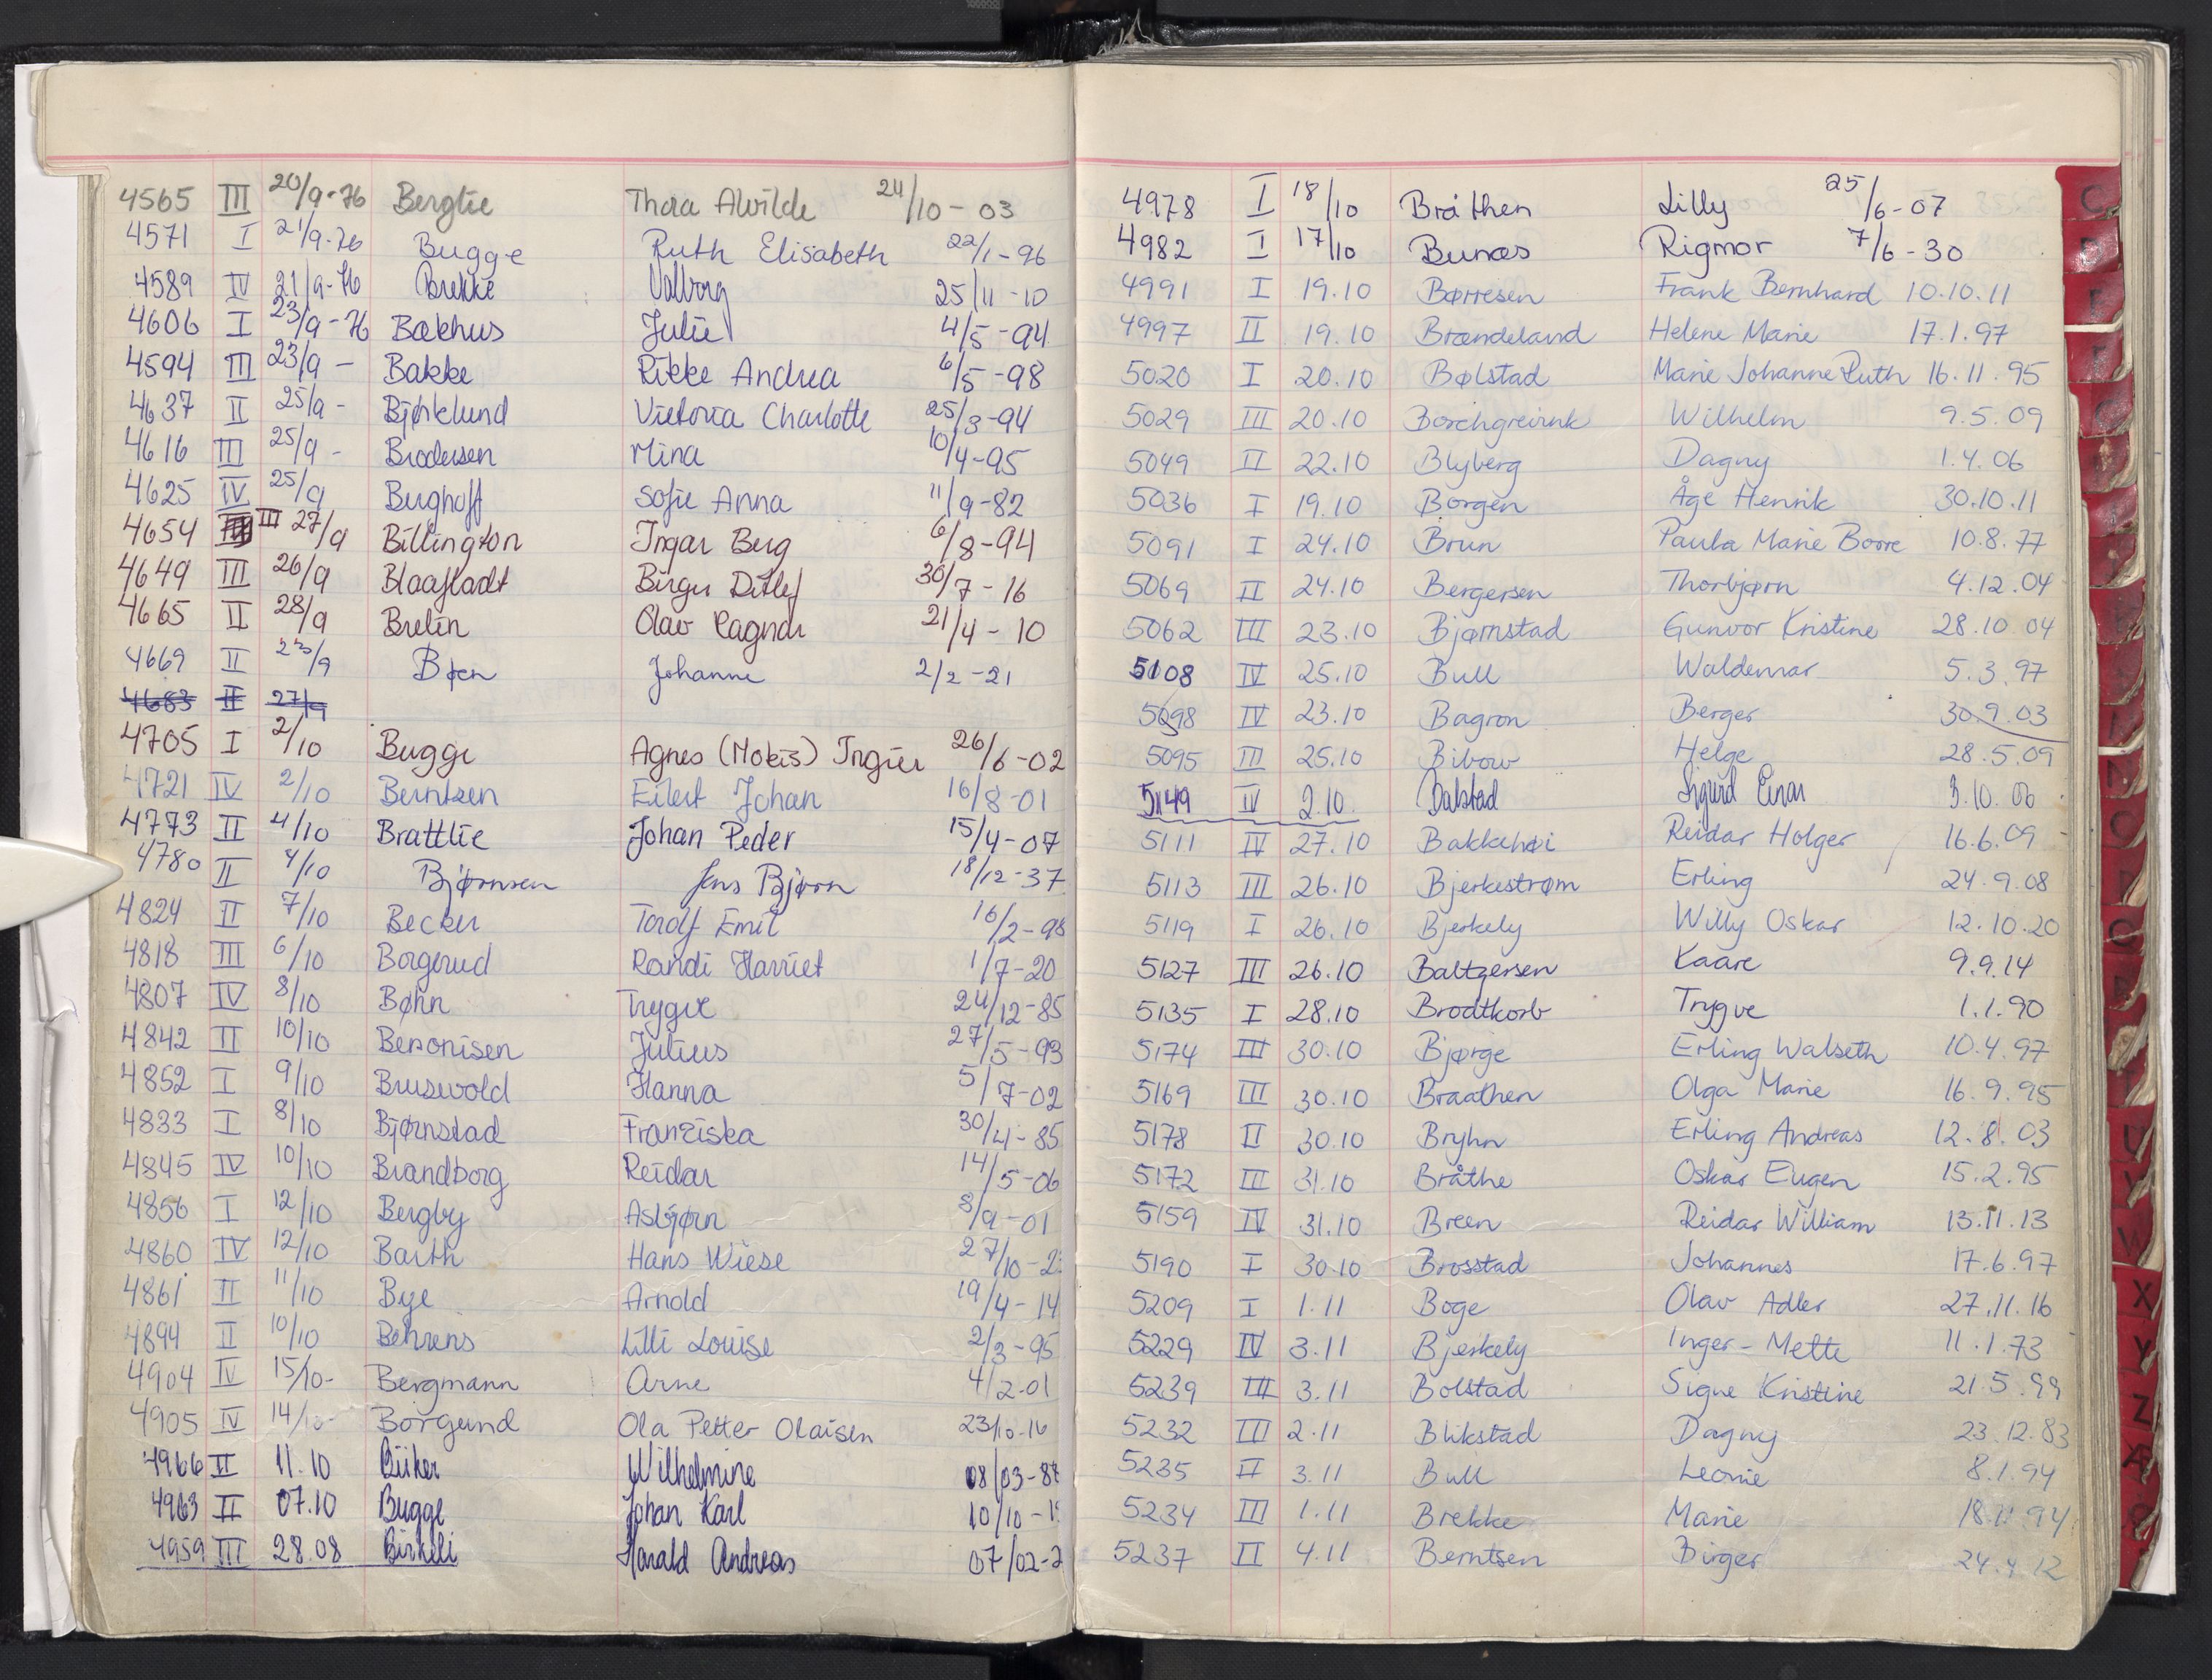 4565 III 20/9-76 Berglie Thora Alvilde 24/10-03
4571 I 21/9-76 Bugge Ruth Elisabeth 22/1-96
4589 IV 21/9-76 Brekke Valborg 25/11-10
4606 I 23/9-76 Bakhus Julie 4/5-94
4594 III 23/9- Bakke Rikke Andrea 6/5-98
4637 II 25/9- Bjørklund Victoria Charlotte 25/3-94
4616 III 25/9- Brodersen Mina 10/4-95
4625 IV 25/9 Berghoff Sofie Anna 11/9-82
4654 III 27/9 Billington Ingar Berg 6/8-94
4649 III 26/9 Blaafladt Birger Ditlef 30/7-16
4665 II 28/9 Brelin Olav Ragnar 21/4-10
4669 II /9 Bøen Johanne 2/2-21
4683 II 27/9
4705 I 2/10 Bugge Agnes (Mokis) Ingier 26/6-02
4721 IV 2/10 Berntzen Eilert Johan 16/8-01
4773 II 4/10 Brattlie Johan Peder 15/4-07
4780 II 4/10 Bjørnsen Jens Bjørn 18/12-37
4824 II 7/10 Becker Torolf Emil 16/2-98
4818 III 6/10 Borgerud Randi Harriet 1/7-20
4807 IV 8/10 Bøhn Trygve 24/12-85
4842 II 10/10 Beronisen Julius 27/5-93
4852 I 9/10 Brusevold Hanna 5/7-02
4833 I 8/10 Bjørnstad Franziska 30/4-85
4845 IV 10/10 Brandborg Reidar 14/5-06
4856 I 12/10 Bergby Asbjørn 8/9-01
4860 IV 12/10 Barth Hans Wiese 27/10-2
4861 II 11/10 Bye Arnold 19/4-14
4894 II 10/10 Behrens Lilli Louise 2/3-95
4904 IV 15/10- Bergmann Arne 4/2-01
4905 IV 14/10- Borgund Ola Petter Olaisen 23/10-16
4966 II 11.10 Büker Wilhelmine 08/03-8
4963 II 07.10 Bugge Johan Karl 10/10-1
4959 III 28.08 Birkeli Harald Andreas 07/02-2
4978 I 18/10 Bråthen Lilly 25/6-07
4982 I 17/10 Bunæs Rigmor 7/6-30
4991 I 19.10 Børresen Frank Bernhard 10.10.11
4997 II 19.10 Brændeland Helene Marie 17.1.97
5020 I 20.10 Bølstad Marie Johanne Ruth 16.11.95
5029 III 20.10 Borchgrevink Wilhelm 9.5.09
5049 II 22.10 Blyberg Dagny 1.4.06
5036 I 19.10 Borgen Åge Henrik 30.10.11
5091 I 24.10 Brun Paula Marie Borre 10.8.77
5069 II 24.10 Bergersen Thorbjørn 4.12.04
5062 III 23.10 Bjørnstad Gunvor Kristine 28.10.04
5108 IV 25.10 Bull Waldemar 5.3.97
5098 IV 23.10 Bagron Berger 30.9.03
5095 III 25.10 Bibow Helge 28.5.09
5149 IV 2.10 Balstad Sigurd Einar 3.10.06
5111 IV 27.10 Bakkehøi Reidar Holger 16.6.09
5113 III 26.10 Bjerkestrøm Erling 24.9.08
5119 I 26.10 Bjerkely Willy Oskar 12.10.20
5127 III 26.10 Baltzersen Kaare 9.9.14
5135 I 28.10 Brodtkorb Trygve 1.1.90
5174 III 30.10 Bjørge Erling Walseth 10.4.97
5169 III 30.10 Braathen Olga Marie 16.9.95
5178 II 30.10 Bryhn Erling Andreas 12.8.03
5172 III 31.10 Bråthe Oskar Eugen 15.2.95
5159 IV 31.10 Breen Reidar William 13.11.13
5190 I 30.10 Brosstad Johannes 17.6.97
5209 I 1.11 Boge Olav Adler 27.11.16
5229 IV 3.11 Bjerkely Inger-Mette 11.1.73
5239 III 3.11 Bolstad Signe Kristine 21.5.99
5232 III 2.11 Blikstad Dagny 23.12.83
5235 II 3.11 Bull Leonie 8.1.94
5234 III 1.11 Brekke Marie 18.11.94
5237 II 4.11 Berntsen Birger 24.4.12
C
X
Y
Z